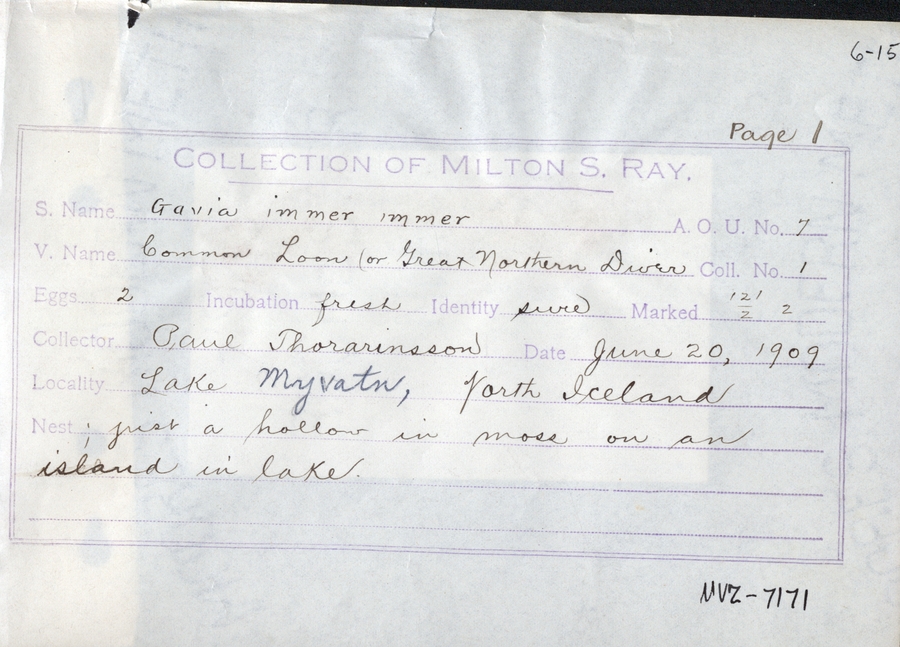 6-15
Page 1
COLLECTION OF MILTON S. RAY.
S. Name Gavia immer immer A. O. U. No. 7
V. Name Common Loon (or Great Northern Diver Coll. No. 1
Eggs 2 Incubation fresh Identity sure Marked 121/2 2
Collector Paul Thorarinsson Date June 20, 1909
Locality Lake Myvatn, North Iceland
Nest ; just a hollow in moss on an
island in lake.
MVZ-7171